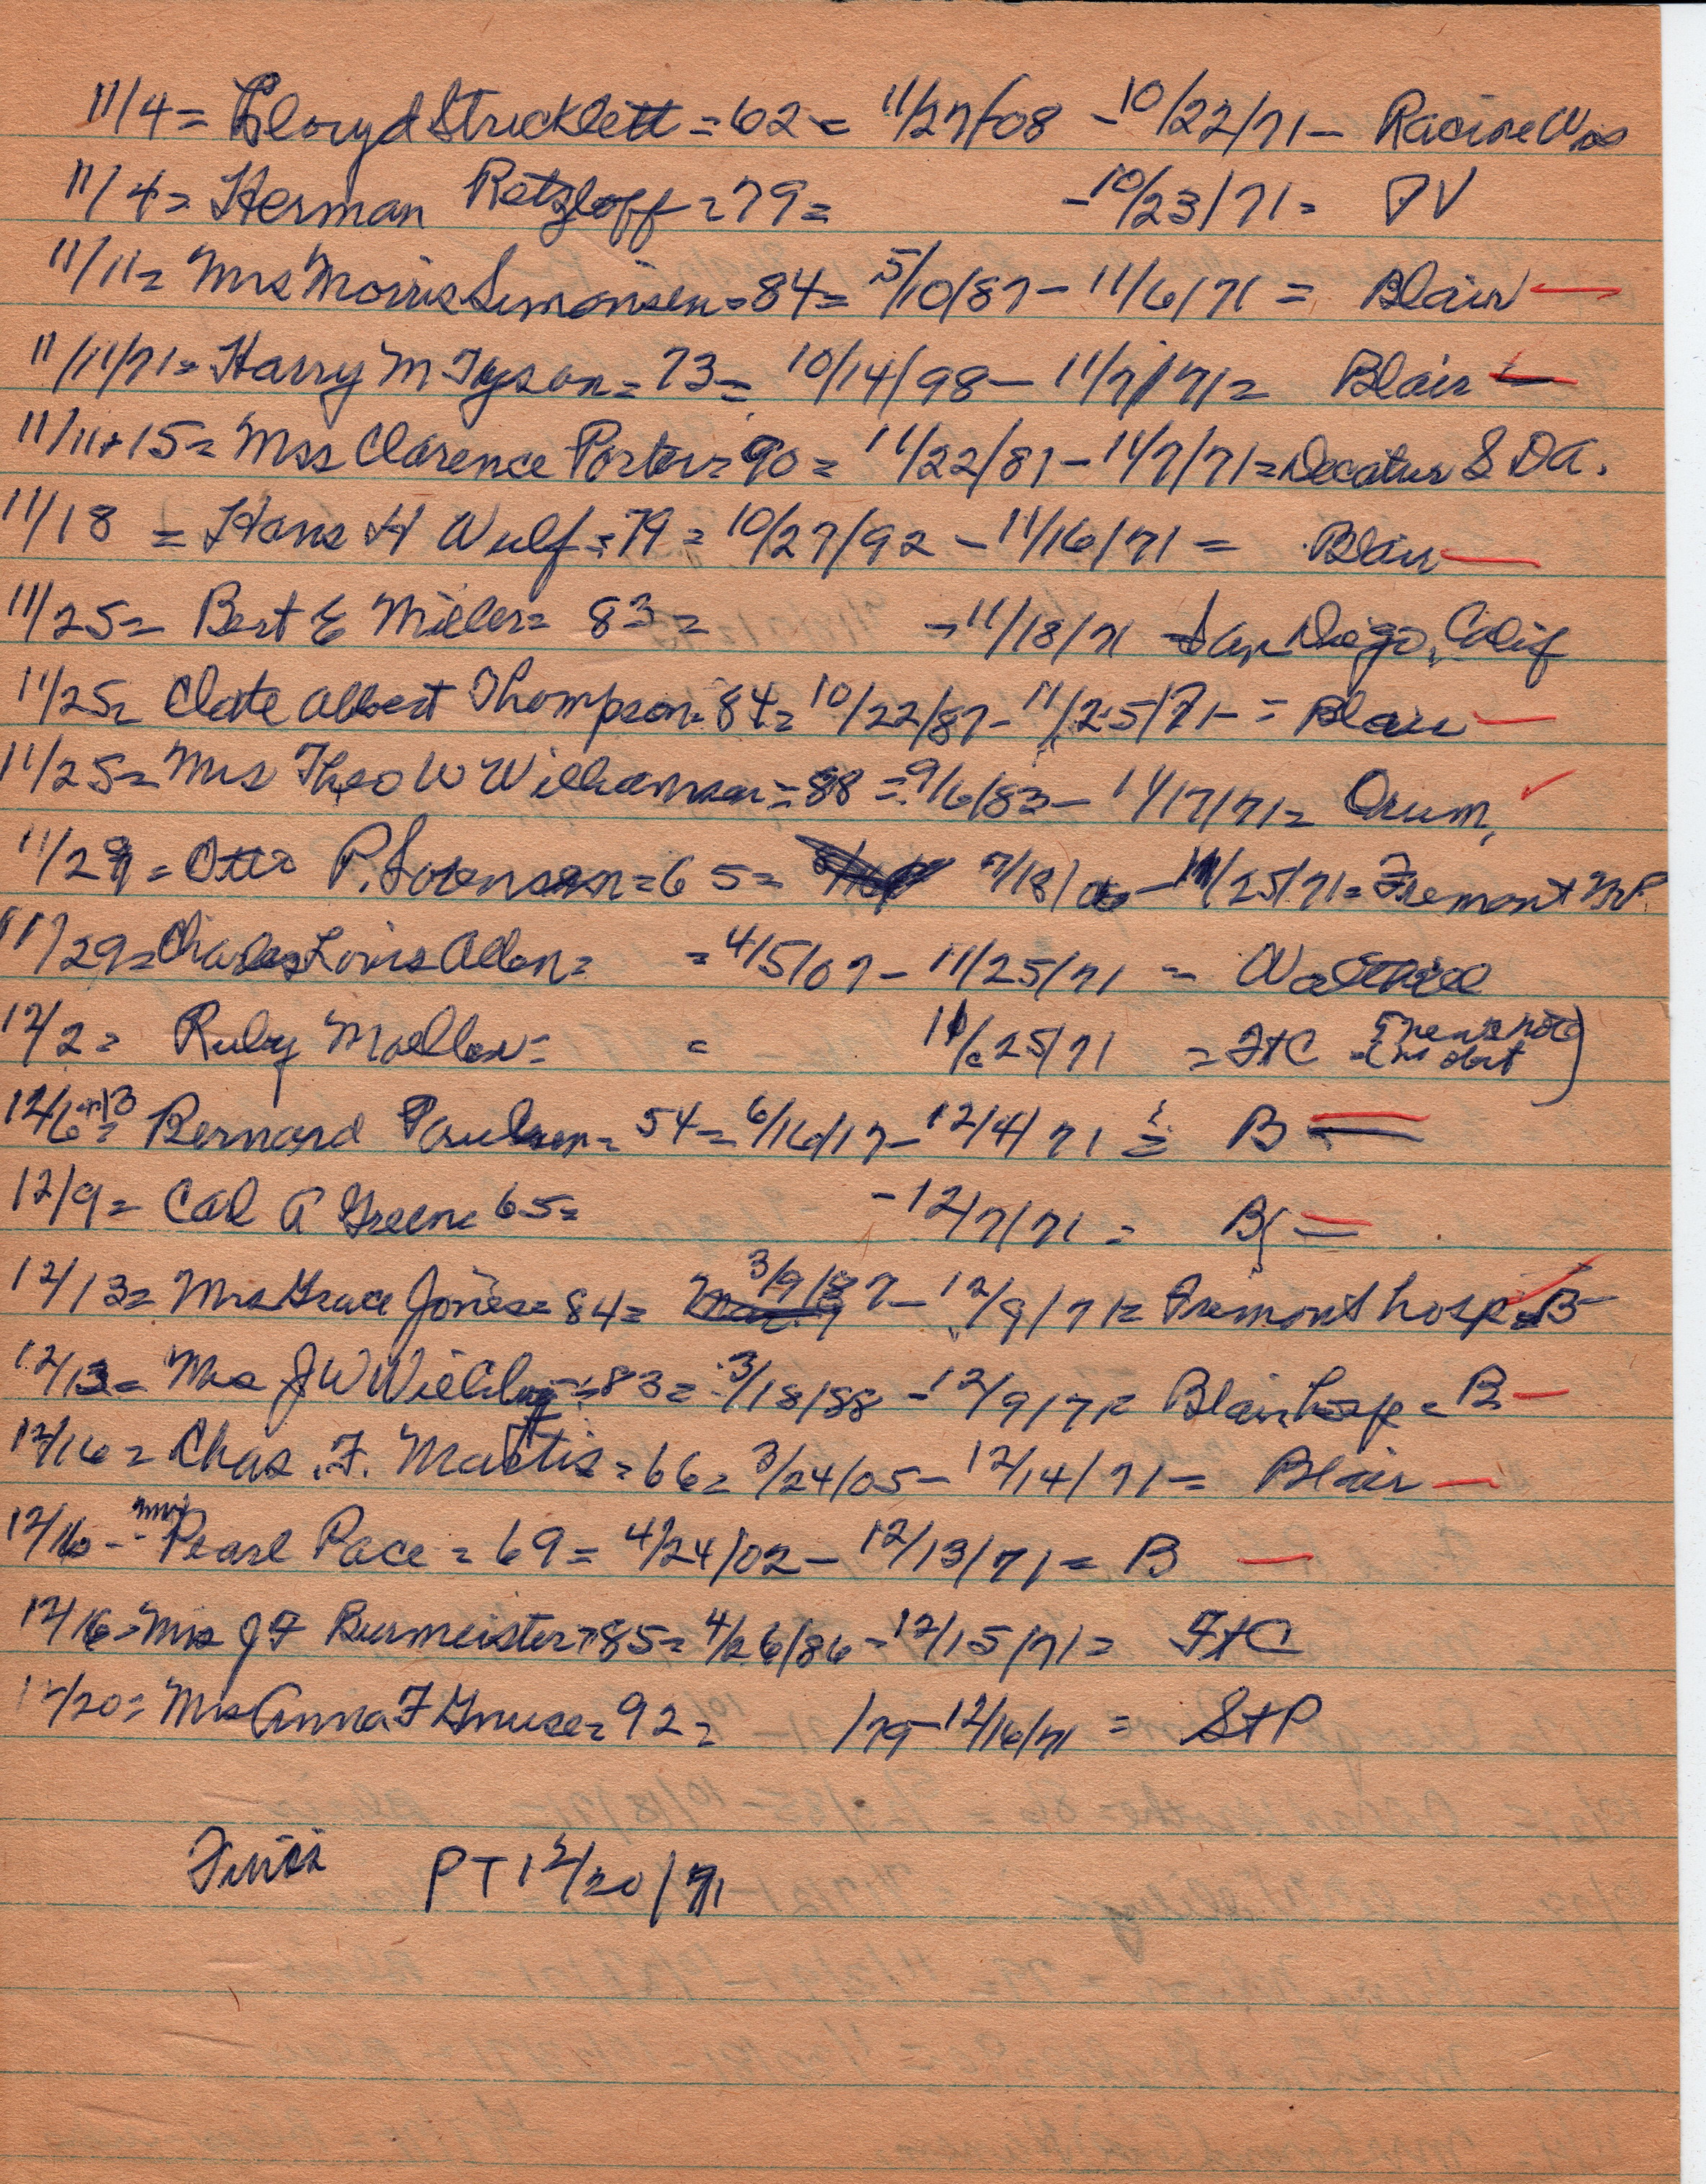 11/4 = Lloyd Stricklett = 62 = 11/27/08 - 10/22/71 - Racine Wis
11/4 = Herman Retzloff = 79 = - 10/23/71 = PV
11/11 = Mrs Morris Simonsen = 84 = 5/10/87 - 11/6/71 = Blair
11/11/71 = Harry M Tyson = 73 = 10/14/98 - 11/7/71 = Blair
11/11+15 = Mrs Clarence Porter = 90 = 11/22/81 - 11/7/71 = Decatur SDA.
11/18 = Hans H Wulf = 79 = 10/27/92 - 11/16/71 = Blair
11/25 = Bert E Miller = 83 = - 11/18/71 San Diego, Calif
11/25 = Clate Albert Thompson = 84 = 10/22/87 - 11/25/71 - = Blair
11/25 = Mrs Theo W Williamson = 88 = 9/6/83 - 11/7/71 = Orum,
11/29 = Otto P. Sorensen = 65 = 7/18/06 - 11/25/71 = Fremont
11/29 = Charles Louis Allen = = 4/5/07 - 11/25/71 = Walthill
12/2 = Ruby Moeller = = 11/25/71 = FtC
12/6+13 = Bernard Paulsen = 54 = 6/16/17 - 12/4/71 = B
12/9 = Carl A Greene 65 = - 12/7/71 = B
12/13 = Mrs Grace Jones = 84 = 3/9/87 - 12/9/71 = Fremont hosp = B
12/13 = Mrs J W = 83 = 3/18/88 - 12/9/71 = Blair hosp = B
12/16 = Chas. F. Mattis = 66 = 3/24/05 - 12/14/71 = Blair
12/16 - Mrs Pearl Pace = 69 = 4/24/02 - 12/13/71 = B
12/16 = Mrs J F Burmeister = 85 = 4/26/86 - 12/15/71 = FtC
12/20 = Mrs Anna F Gruse = 92 = /79 - 12/16/71 = StP
Finis PT 12/20/71